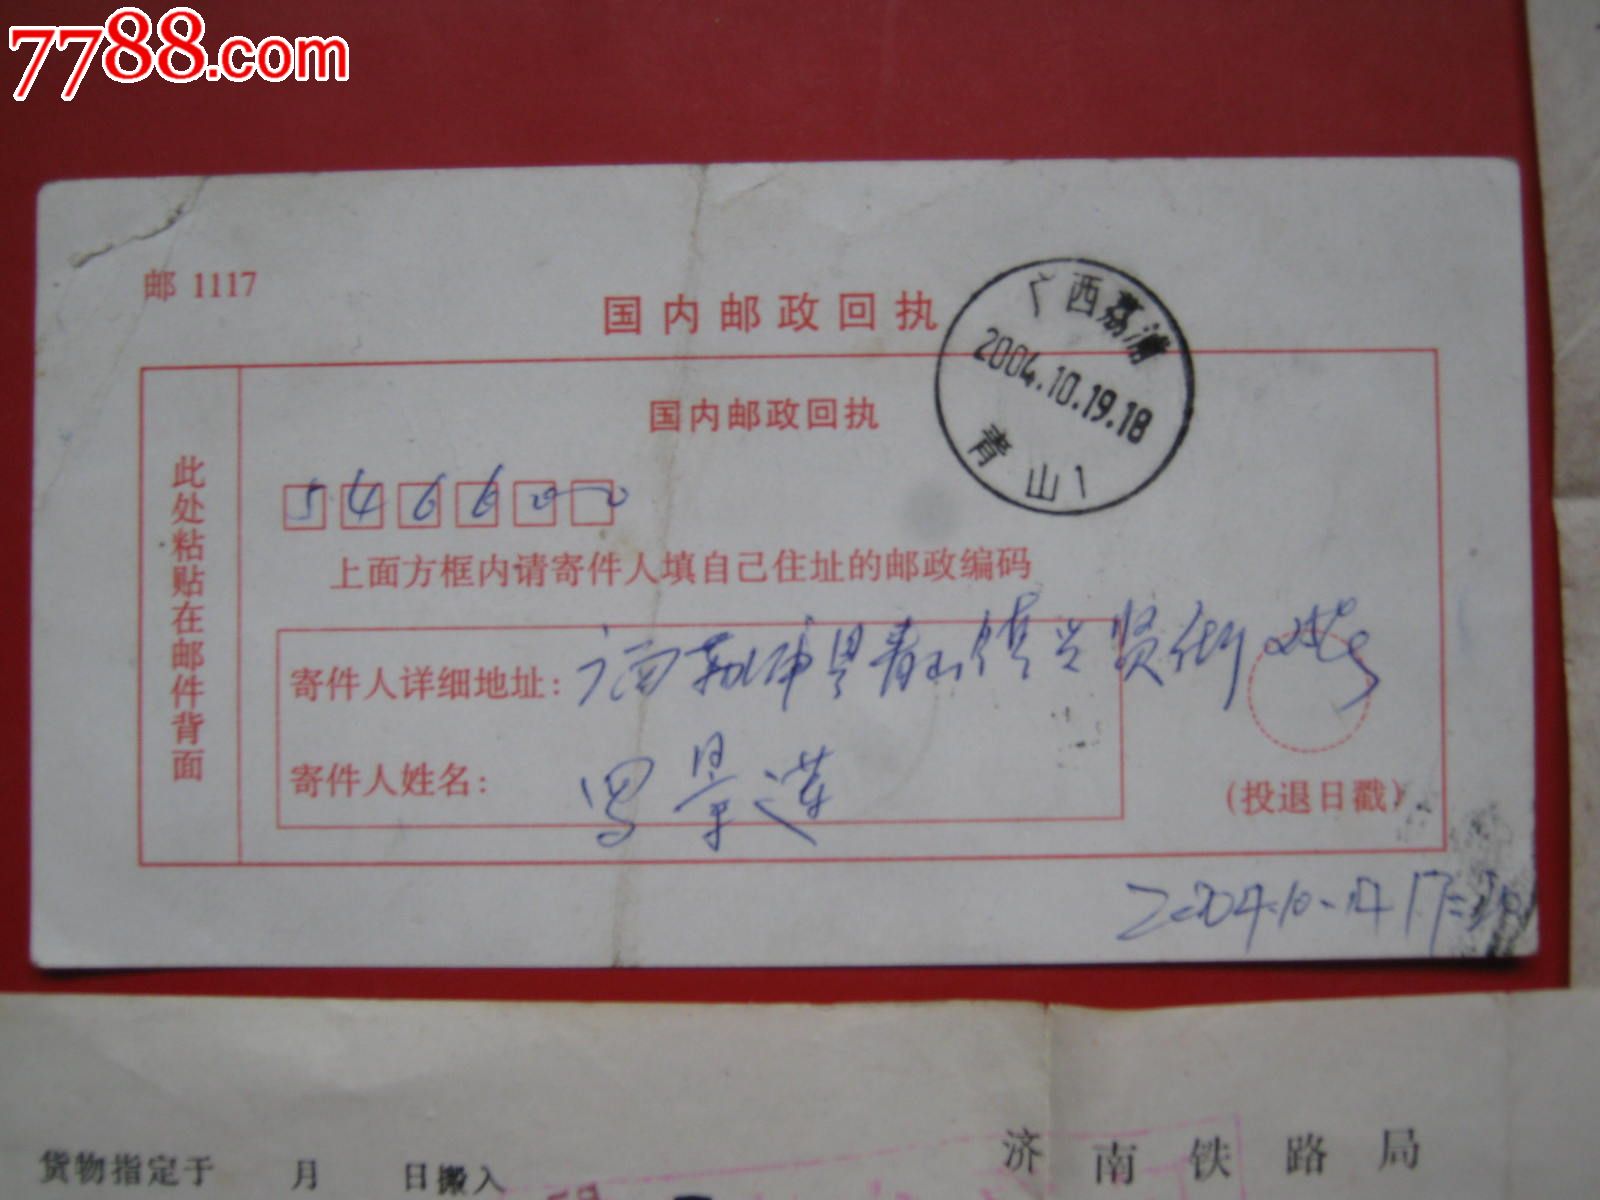 7788.com
邮 1117
国内邮政回执
广西荔浦
2004.10.19.18
青山1
此处粘贴在邮件背面
国内邮政回执
546600
上面方框内请寄件人填自己住址的邮政编码
寄件人详细地址：广西荔浦县青山镇兴贤街
寄件人姓名：景莲
(投退日戳)
2004.10.
济南铁路局
货物指定于 月 日搬入